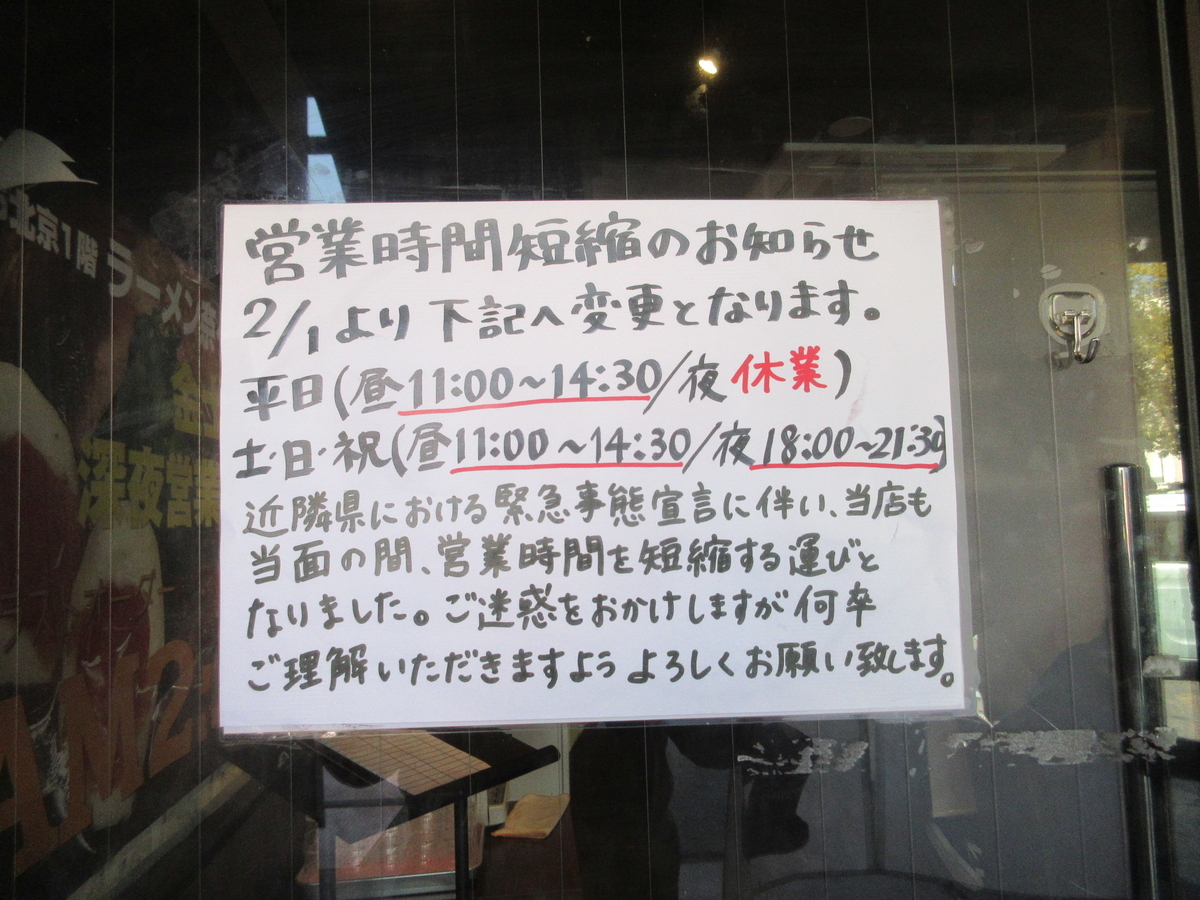 営業時間短縮のお知らせ
2/1より下記へ変更となります。
平日(昼11:00〜14:30/夜休業)
土・日・祝(昼11:00〜14:30/夜18:00〜21:30)
近隣県における緊急事態宣言に伴い、当店も
当面の間、営業時間を短縮する運びと
なりました。ご迷惑をおかけしますが何卒
ご理解いただきますようよろしくお願い致します。
北京1階
ラーメン
深夜営業
AM2